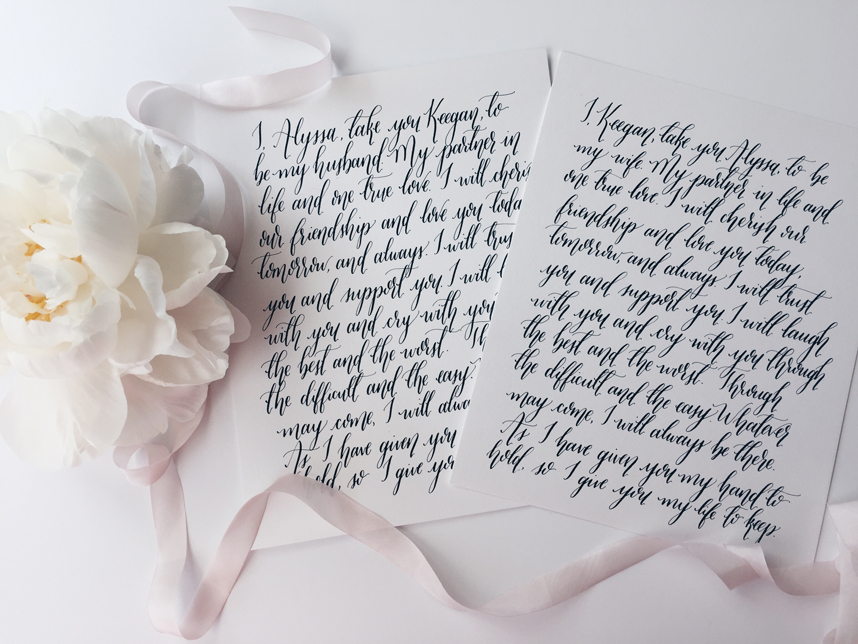 I, Alyssa, take you Keegan, to
be my husband. My partner in
life and one true love. I will cheris
our friendship and love you toda
tomorrow, and always. I will trus
you and support you. I will l
with you and cry with you
the best and the worst. Th
the difficult and the easy.
may come, I will alwa
As I have given you
hold, so I give yo
I, Keegan, take you Alyssa, to be
my wife. My partner in life and
one true love. I will cherish our
friendship and love you today,
tomorrow, and always. I will trust
you and support you. I will laugh
with you and cry with you through
the best and the worst. Through
the difficult and the easy. Whatever
may come, I will always be there.
As I have given you my hand to
hold, so I give you my life to keep.